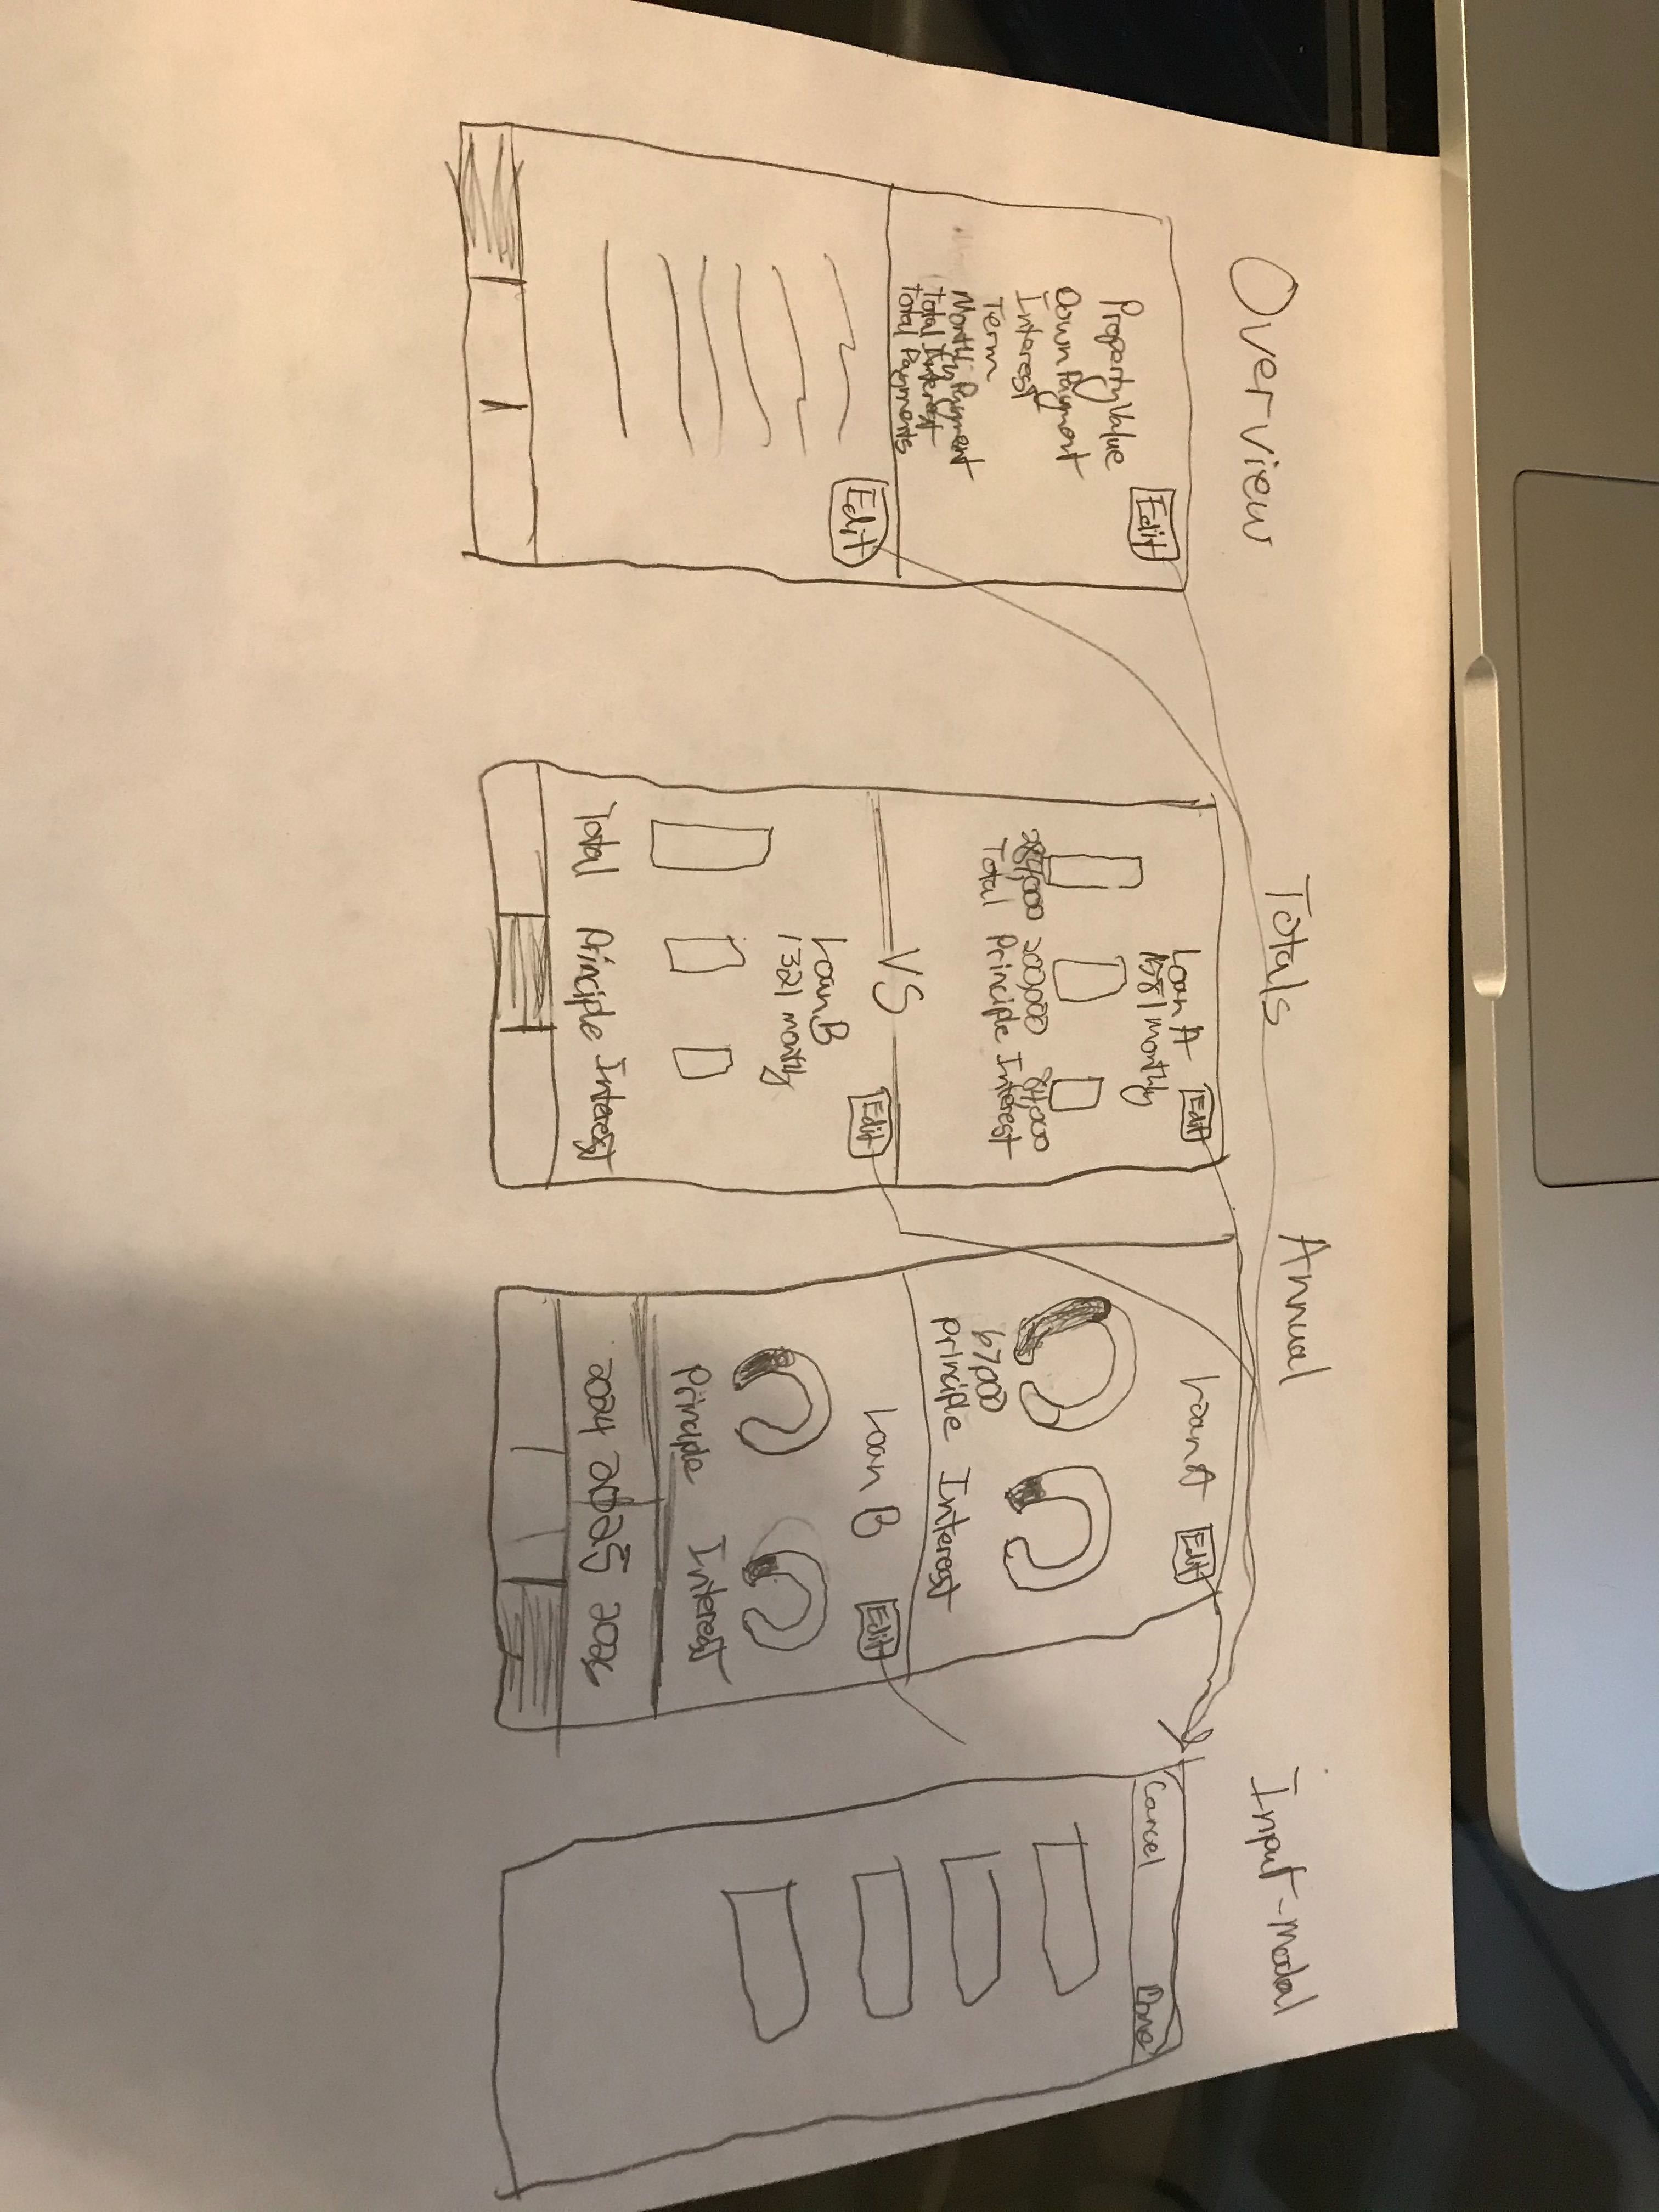 Overview
Edit
Property Value
Down Payment
Interest
Term
Monthly Payment
Total Interest
Total Payments
Edit
Totals
Loan A
Edit
1581 monthly
284,000 200,000 84,000
Total Principle Interest
VS
Edit
Loan B
1321 monthly
Total Principle Interest
Annual
Loan A
Edit
67,000
Principle Interest
Loan B
Edit
Principle Interest
2024 2025 2026
Input-modal
Cancel
Done